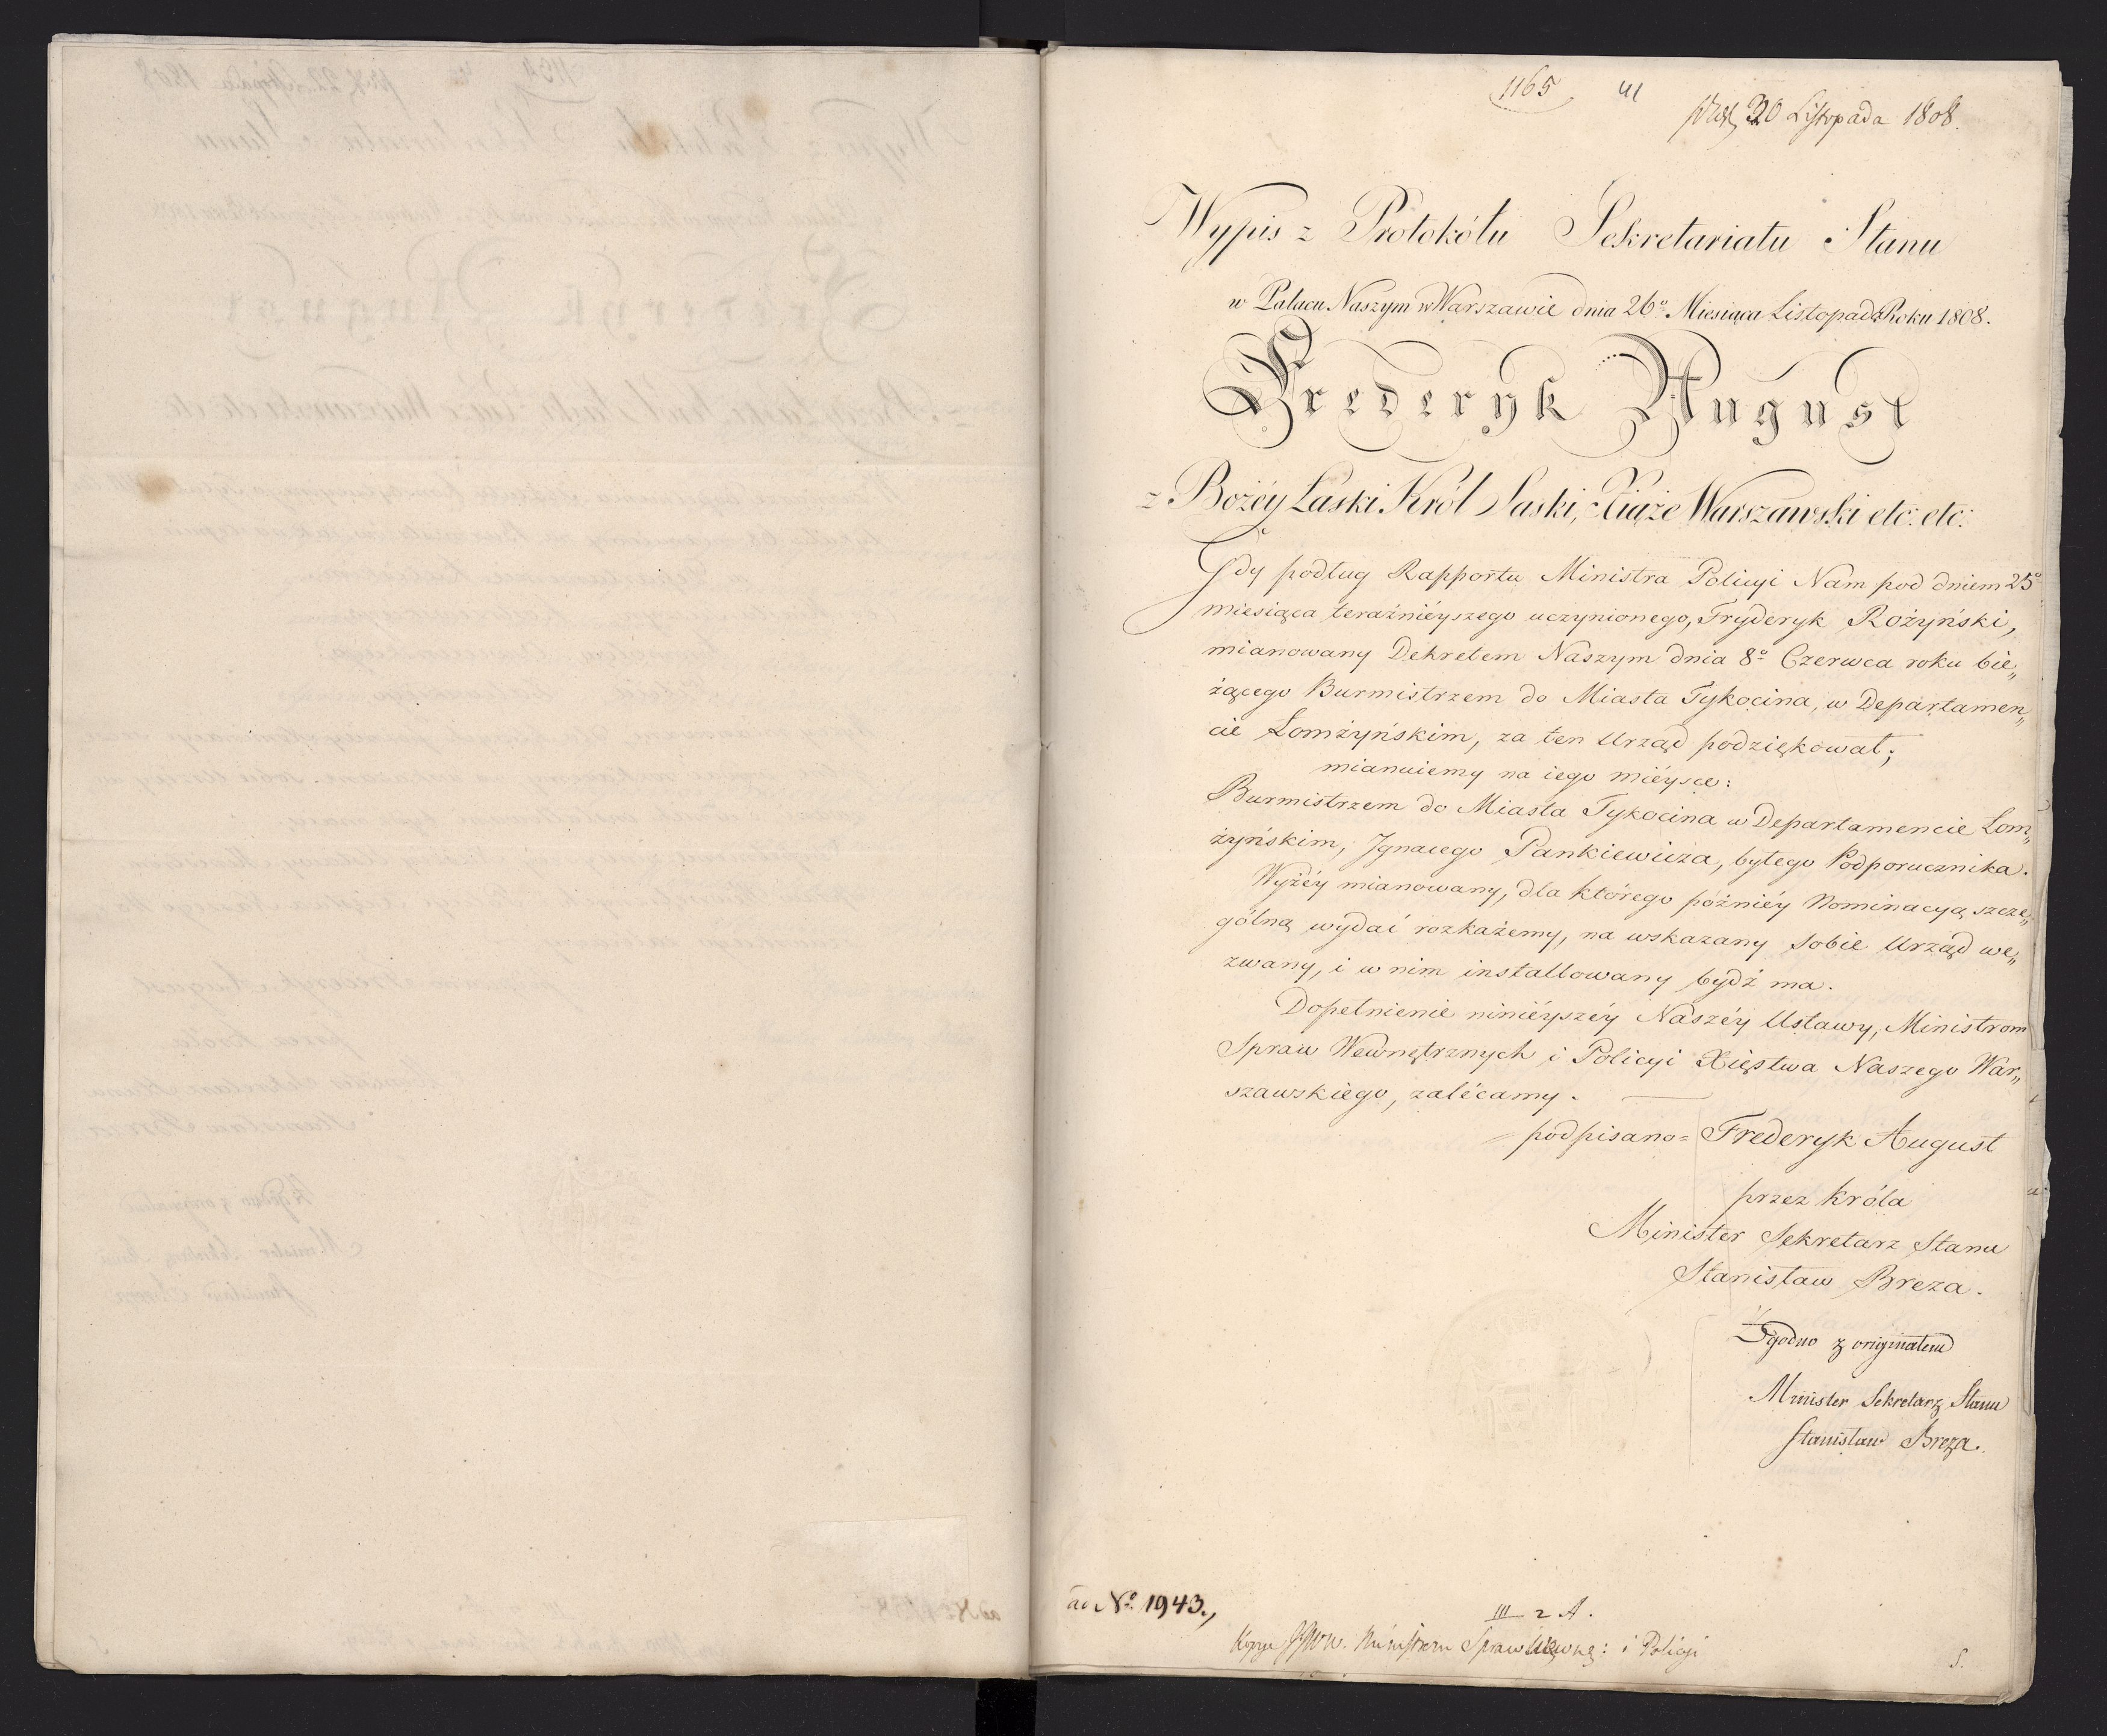 1165 41
30 Listopada 1808.
Wypis z Protokółu Sekretariatu Stanu
w Pałacu Naszym w Warszawie dnia 26º Miesiąca Listopada Roku 1808.
Frederyk August
z Bożéy Łaski Król Saski, Xiąże Warszawski etc: etc:
Gdy podług Rapportu Ministra Policyi Nam pod dniem 25º
miesiąca teraźniéyszego uczynionego, Fryderyk Rożyński,
mianowany Dekretem Naszym dnia 8º Czerwca roku bie„
żącego Burmistrzem do Miasta Tykocina, w Departamen„
cie Łomżyńskim, za ten Urząd podziękował;
mianuiemy na iego miéysce:
Burmistrzem do Miasta Tykocina w Departamencie Łom„
żyńskim, Jgnacego Pankiewicza, byłego Podporucznika.
Wyżéy mianowany, dla którego późniéy Nominacyą szcze„
gólną wydać rozkażemy, na wskazany sobie Urząd we„
zwany, i w nim installowany bydź ma.
Dopełnienie niniéyszéy Naszéy Ustawy, Ministrom
Spraw Wewnętrznych i Policyi Xięstwa Naszego War„
szawskiego, zalécamy.
podpisano= Frederyk August
przez Króla
Minister Sekretarz Stanu
Stanisław Breza.
Zgodno z originałem
Minister Sekretarz Stanu
Stanisław Breza.
ad Nº 1943.,
III 2 A.
Kopye JJWW. Ministrom Spraw Wewnę: i Policyi
S.